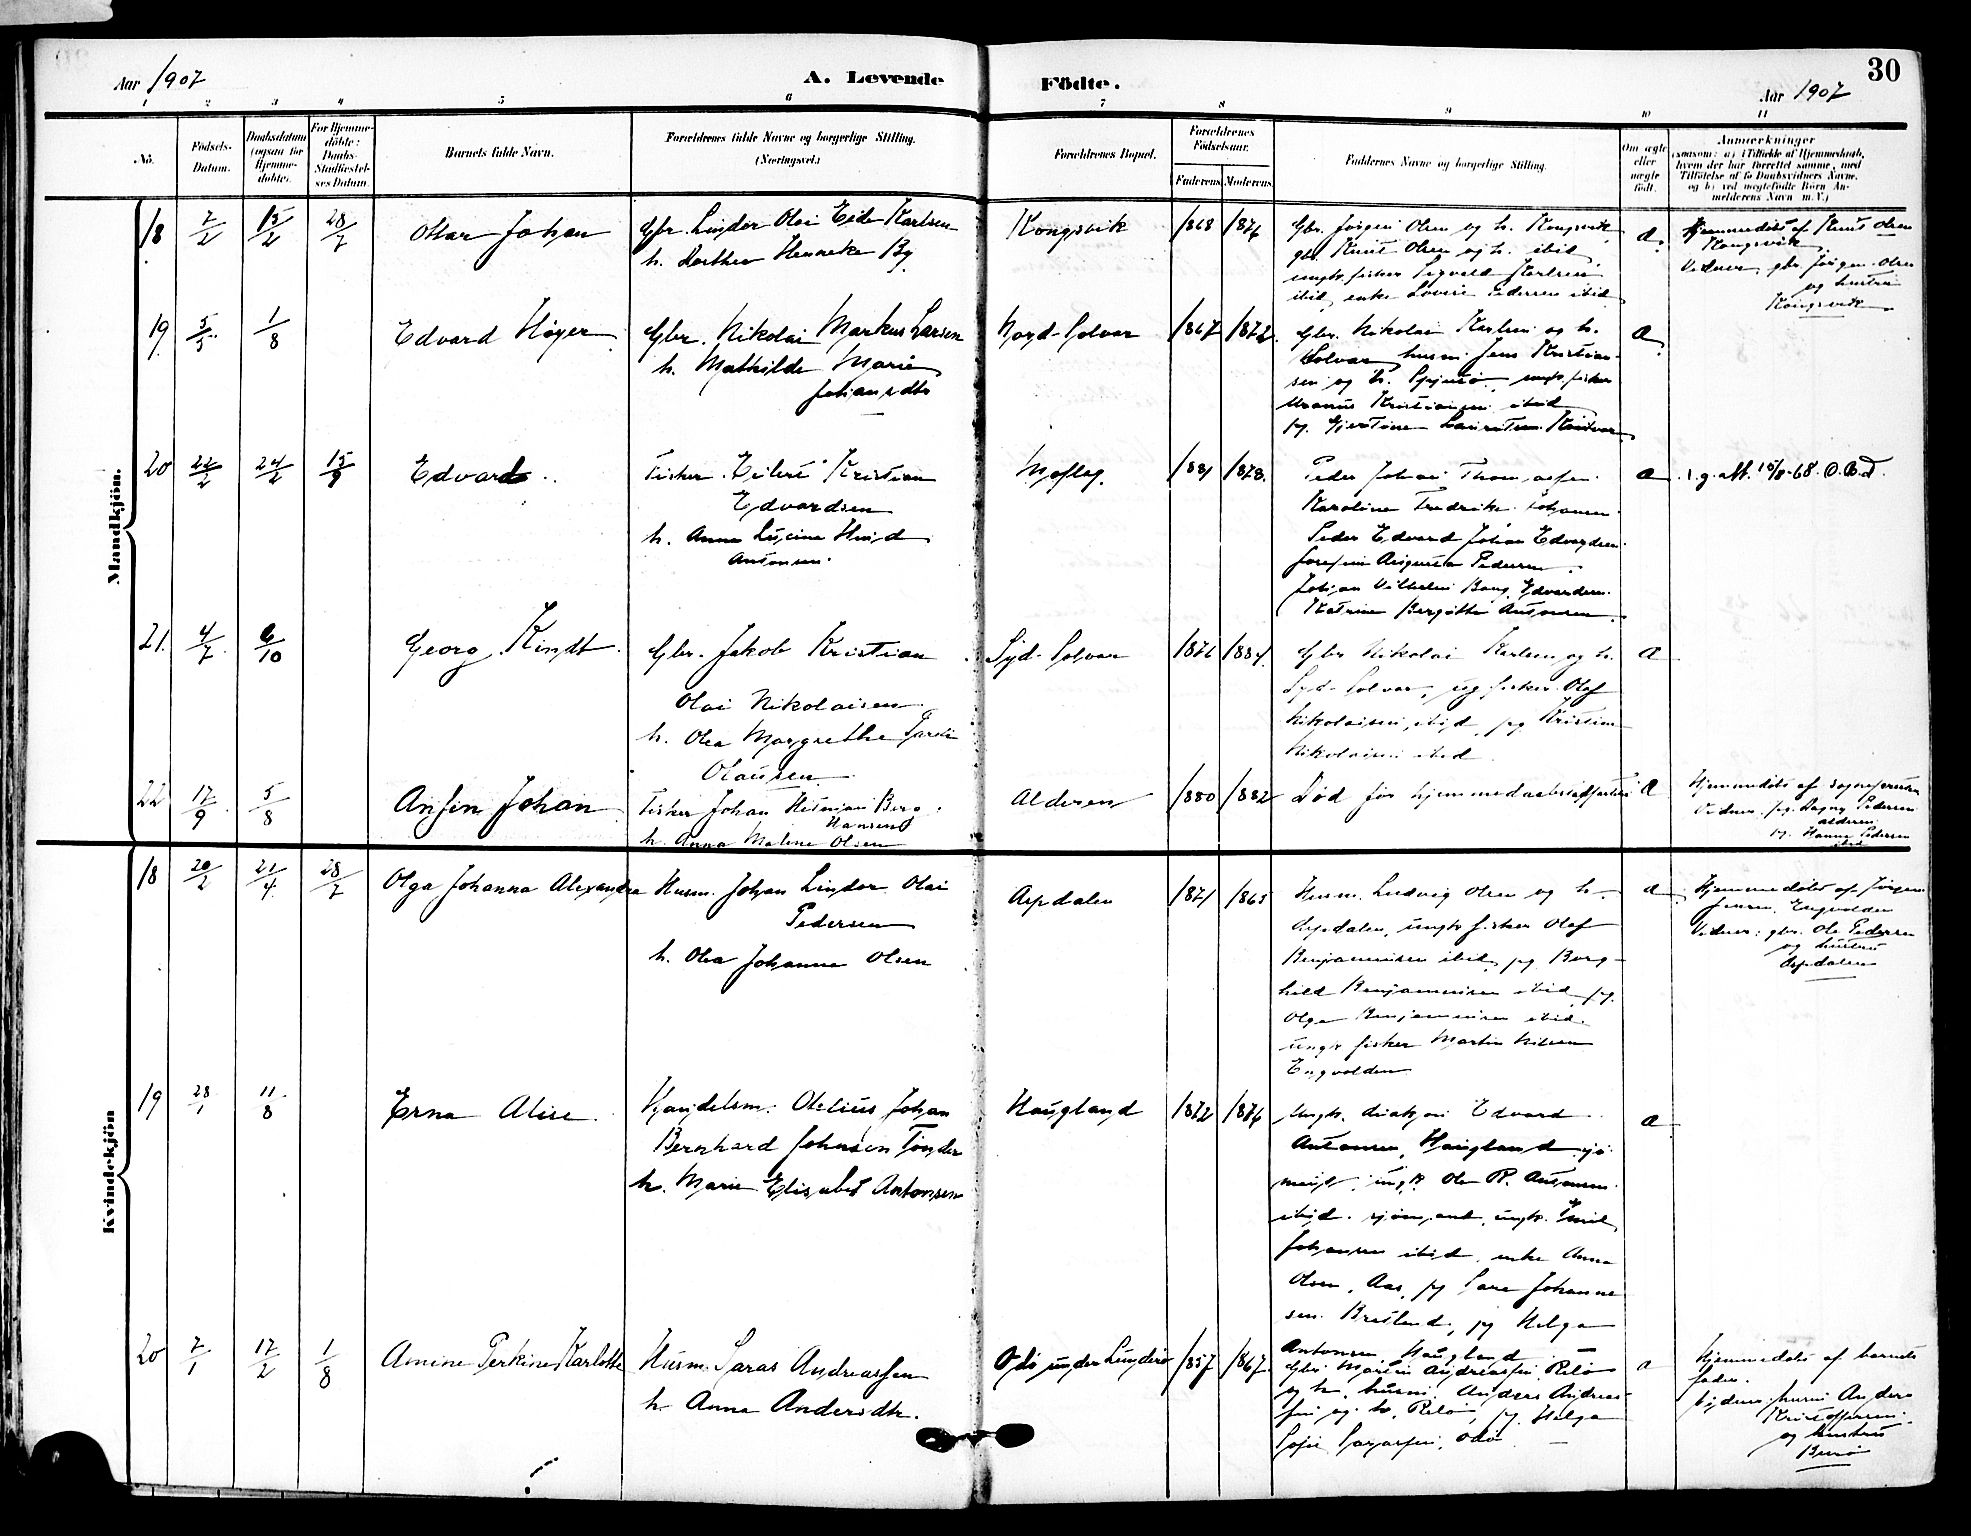 30
Aar 1907
A. Levende Födte.
Aar 1907
1 2 3 4 5 6 7 8 9 10 11
No.
Födsels-
Datum.
Daabsdatum
(ogsaa for
Hjemme-
döbte).
For Hjemme-
döbte:
Daabs-
Stadfæstel-
ses Datum
Barnets fulde Navn.
Forældrenes fulde Navne og borgerlige Stilling.
(Næringsvei.)
Forældrenes Bopæl.
Forældrenes
Födselsaar.
Faderens
Moderens
Faddernes Navne og borgerlige Stilling.
Om ægte
eller
uægte
födt.
Anmærkninger
(saasom: a) i Tilfælde af Hjemmedaab,
hvem der har forrettet samme, med
Tilföielse af to Daabsvidners Navne,
og b) ved uægtefödte Börn An-
melderens Navn m. V.)
Mandkjön.
18 2/2 15/2 28/7
Ottar Johan
Gbr. Linder Olai Eide Karlsen
h. Dorthea Henneke By
Kongsvik
1868 1876
Gbr. Jörgen Olsen og h. Kongsvik,
gbr. Knut Olsen og h. ibid,
ungk. fisker Sigvald Karlsen
ibid, enke Lovise Pedersen ibid
a.
Hjemmedöbt af Knut Olsen
Kongsvik
Vidner, gbr. Jörgen Olsen
og hustru
Kongsvik
19 5/5 1/8
Edvard Höyer
Gbr. Nikolai Markus Larsen
h. Mathilde Marie
Johansdtr
Nord-Solvær
1867 1872.
Gbr. Nikolai Karlsen og h.
Solvær, husm. Jens Kristian-
sen og h. ungk. fisker
Kristiansen ibid
a
20 22/2 24/2 15/9
Edvard
Fisker Eilert Kristian
Edvardsen
h. Anna Lusine Hind
Antonsen.
Moflag.
1881 1878.
Peder Johan Thomassen.
Karoline Fredrikke Johansen
Peder Edvard Johan Edvardsen.
Josefine Augusta Pedersen.
Johan Vilhelm Berg Edvardsen.
Katrine Bergitte Antonsen.
a
g. att. 15/8-68. O.B.d.
21. 4/7 6/10
Georg Kindt
Gbr. Jakob Kristian
Olai Nikolaisen
h. Olea Margrethe
Olausen
Syd-Solvær
1876 1884.
Gbr Nikolai Karlsen og h.
Syd-Solvær, ug fisker Olaf
Nikolaisen, ibid, pg Kristine
Nikolaisen ibid.
a
22 17/9 5/8
Anfin Johan
Fisker Johan Hitman Berg
Hansen
h. Anna Malene Olsen
Alderen
1880 1882
Död før hjemmedaabstadfæstelse
a
Hjemmedöbt af sognepresten
Vidner, pg. Dagny Pedersen
alderen
pg. Hanna Pedersen
ibid
Kvindekjön
18 20/2 21/4 28/7
Olga Johanna Alexandra
Husm. Johan Linder Olai
Pedersen
h. Olea Johanna Olsen
Aspdalen
1871 1865
Husm. Ludvig Olsen og h.
Aspdalen, ungk. fisker Olaf
Benjaminsen ibid, pg Borg-
hild Benjaminsen ibid, pg.
Olga Benjaminsen ibid.
ungk fisker Martin Nilsen
Engvolden
a
Hjemmedöbt af Jörgen
Jensen, Engvolden
Vidner: gbr. Ole Pedersen
og hustru
Aspdalen
19 28/1 11/8
Erna Alise
Handelsm. Otelius Johan
Bernhard Johnsen Tönder
h. Marie Elisabet Antonsen
Haugland
1872 1876
Ungk. diakon Edvard
Antonsen, Haugland, sjö-
mand, ungk. Ole R. Antonsen
ibid. sjömand, ungk. Emil
Johansen ibid, enke Anna
Olsen, Aas, pg Sara Johanne-
sen. Breiland, pg Helga
Antonsen Haugland
a
20 7/1 17/2 1/8
Amine Perkine Karlotte
Husm. Saras Andreassen
h Anna Andersdtr.
Odö under Lundero
1857 1867
Gbr Martin Andreassen Relö
og h, husm. Anders Andreas-
sen og h. Relö, pg. Helga
Sofie Sarassen, Odö
a
Hjemmedöbt af barnets
fader.
Vidner: husm Anders
Kristoffersen
og hustru
Burö